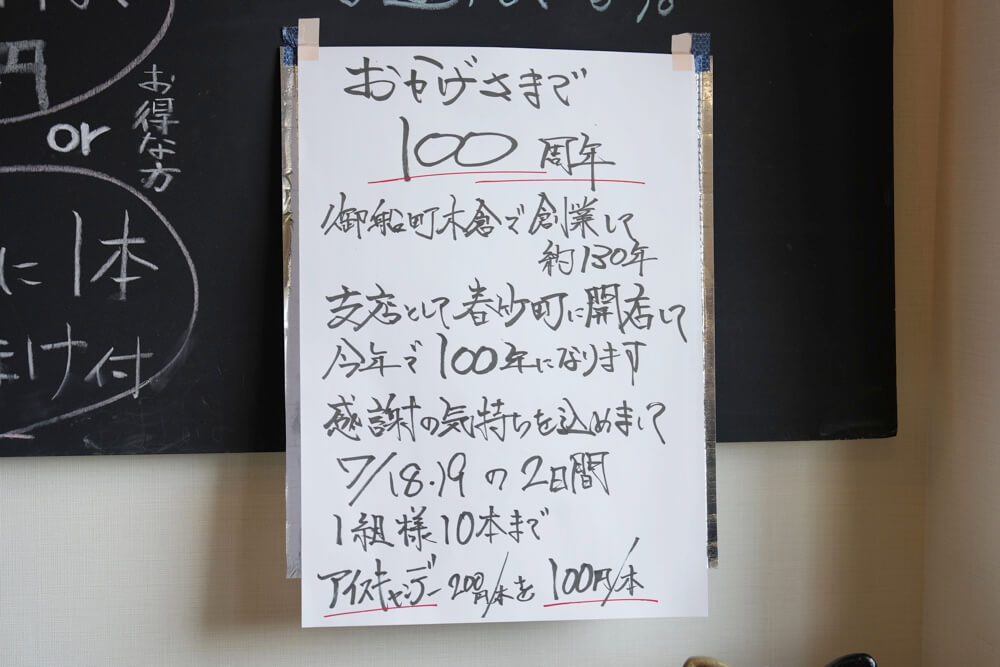 おかげさまで
100周年
御船町木倉で創業して
約130年
支店として春竹町に開店して
今年で100年になります
感謝の気持ちを込めまして
7/18.19の2日間
1組様10本まで
アイスキャンデー200円/本を100円/本
円
or
お得な方
に1本
け付